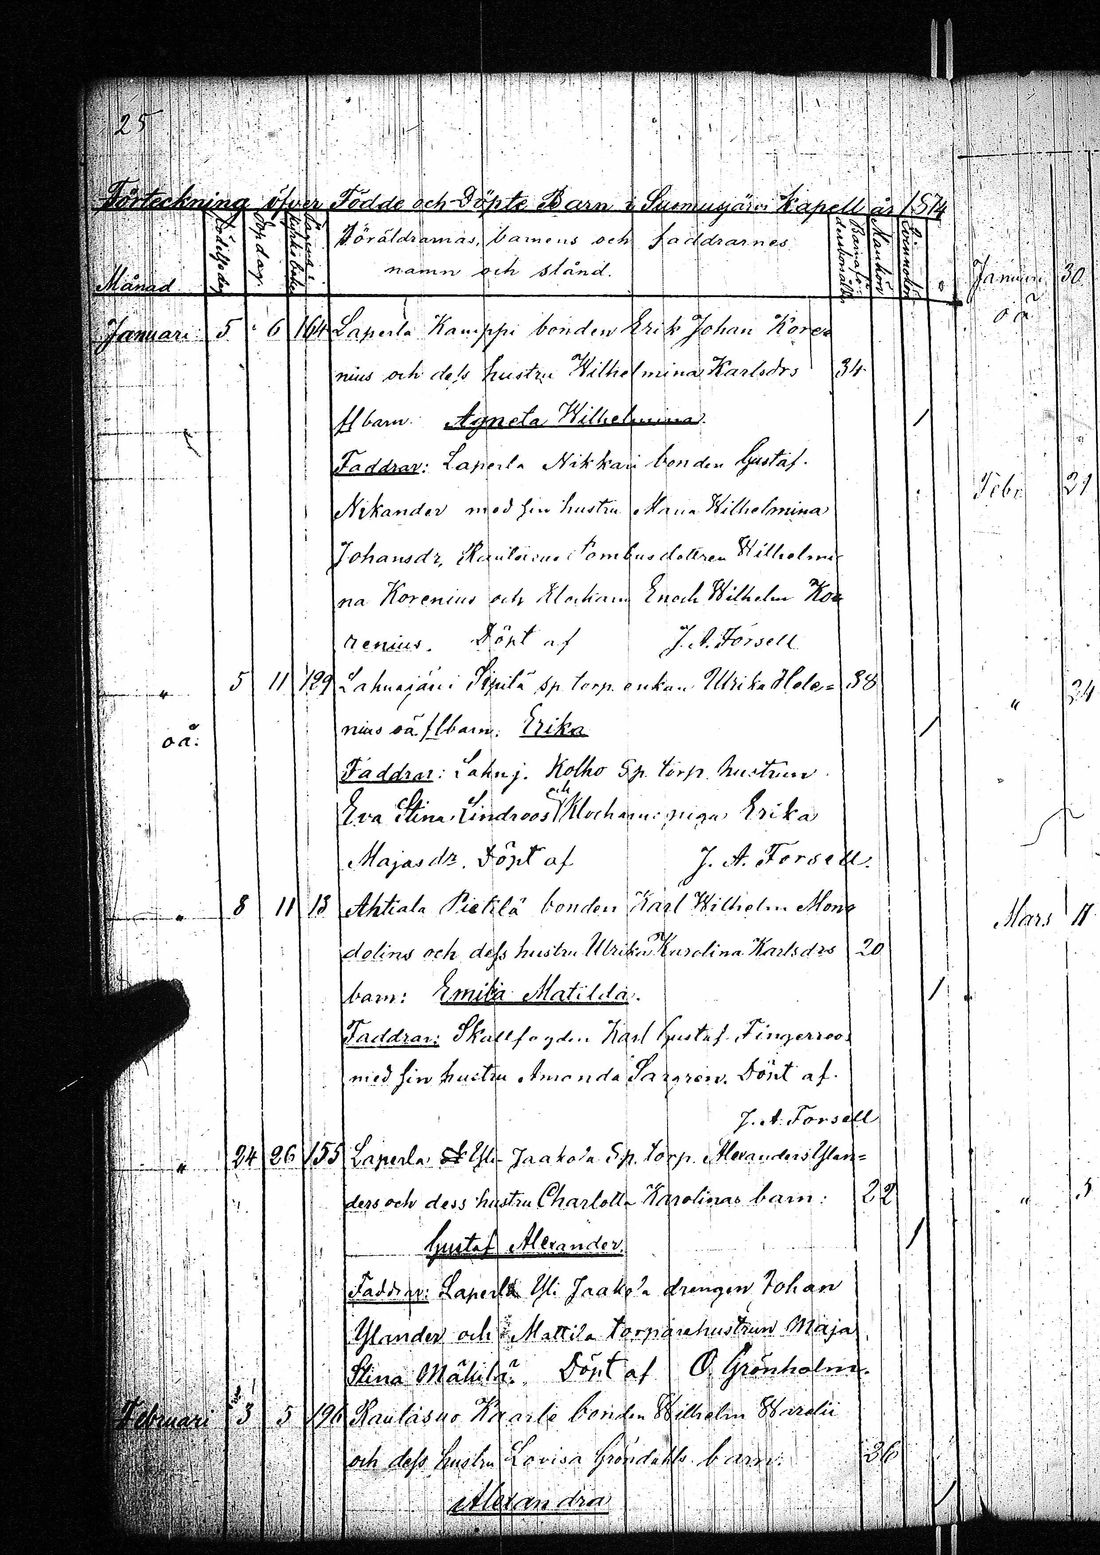 25
Förteckning öfver Födde och Döpte Barn i Suomusjärvi Kapell år 1874
Månad
Födelsedag
Dopdag
Föräldrarnas, barnens och faddrarnes
namn och stånd.
Mankön
Qvinnokön
Januari 5 6 164 Laperla Kamppi bonden Erik Johan Kore
nius och dess hustru Wilhelmina Karlsdrs 34
flbarn: Agneta Wilhelmina. /
Faddrar: Laperla Nikkari bonden Gustaf
Nikander med sin hustru Maria Wilhelmina
Johansdr, Wilhelmi
na Korenius och Enoch Wilhelm Ko
renius. Döpt af J. A. Forsell
" 5 11 129 Lahnajärvi Sipilä sp torp enkan Ulrika Hele= 38
oä: nius oä flbarn: Erika /
Faddrar: Lahnj. Kolho Sp. torp. hustrun
Eva Stina Lindroos och pigan Erika
Majasdr. Döpt af J. A. Forsell.
" 8 11 13 Ahtiala Pietilä bonden Karl Wilhelm Mon
dolins och dess hustru Ulrika Karolina Karlsdrs 20
barn: Emilia Matilda. /
Faddrar: Skallfogden Karl Gustaf Fingerroos
med sin hustru Amanda Döpt af
J. A. Forsell
" 24 26 155 Laperla Yli Jaakola Sp. torp. Alexanders Ylan=
ders och dess hustru Charlotta Karolinas barn: 22
Gustaf Alexander. /
Faddrar: Laperla Yli Jaakola drengen Johan
Ylander och Mattila torparehustrun Maja
Stina Mäkilä. Döpt af O. Grönholm.
Februari 3 5 196 Rautasuo Kaarle bonden Wilhelm
och dess hustru Lovisa Gröndahls barn: 36
Alexandra /
Januari 30
oä
Feb. 21
" 24
Mars 11
" 5